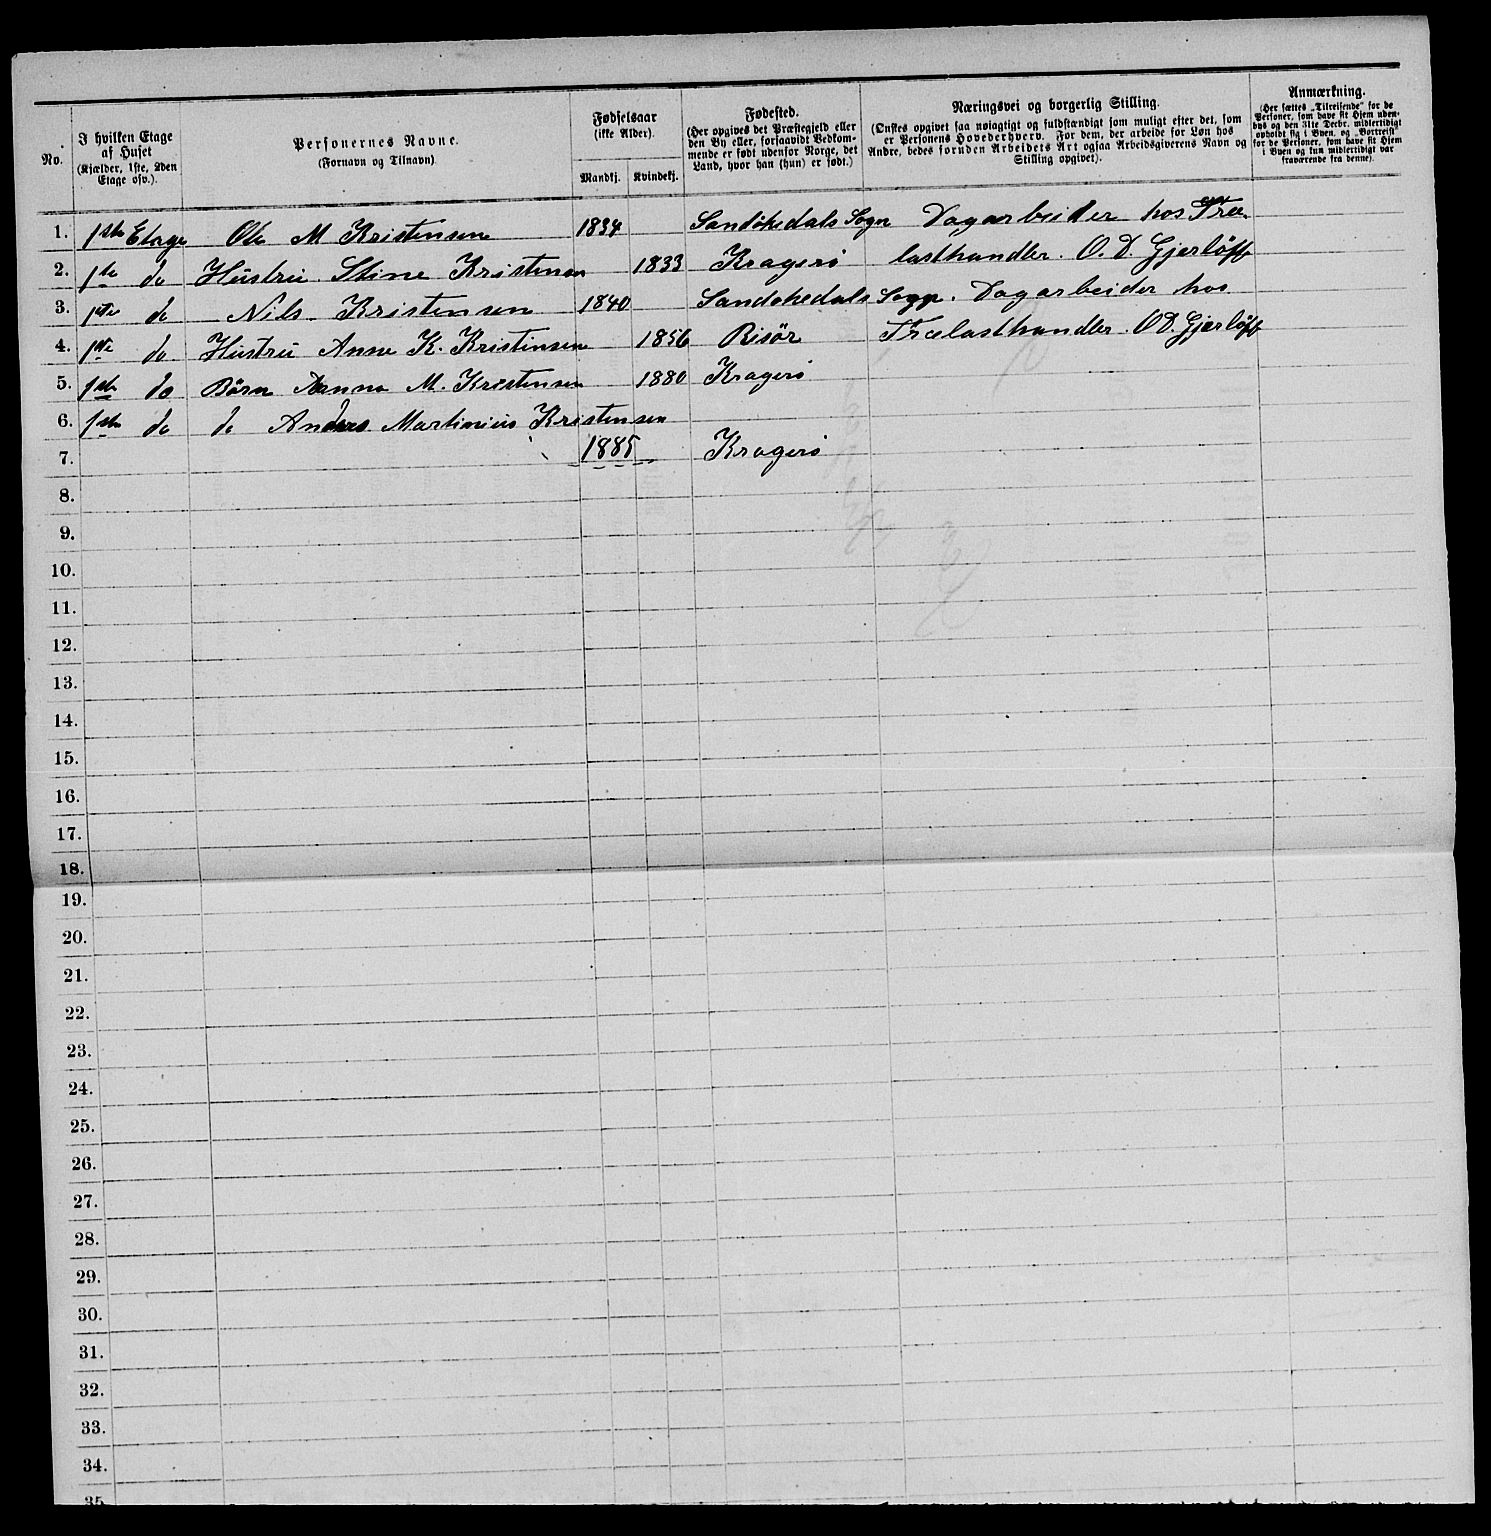 No.
I hvilken Etage af Huset (Kjælder, 1ste, 2den Etage osv.).
Personernes Navne. (Fornavn og Tilnavn)
Fødselsaar (ikke Alder). Mandkj. Kvindekj.
Fødested. (Her opgives det Præstegjeld eller den By eller, forsaavidt Vedkommende er født udenfor Norge, det Land, hvor han (hun) er født.)
Næringsvei og borgerlig Stilling. (Ønskes opgivet saa nøiagtigt og fuldstændigt som muligt efter det, som er Personens Hovederhverv. For dem, der arbeide for Løn hos Andre, bedes foruden Arbeidets Art ogsaa Arbeidsgiverens Navn og Stilling opgivet).
Anmærkning. (Her sættes „Tilreisende" for de Personer, som have sit Hjem udenbys og den 31te Decbr. midlertidigt opholdt sig i Byen, og „Bortreist" for de Personer, som have sit Hjem i Byen og kun midlertidigt var fraværende fra denne).
1. 1ste Etage Ole M Kristensen 1834 Sandøkedals Sogn Dagarbeider hos Træ
2. 1ste do Hustru Stine Kristensen 1833 Kragerø lasthandler. O. D. Gjerløff
3. 1ste do Nils Kristensen 1840 Sandøkedals Sogn. Dagarbeider hos
4. 1ste do Hustru Anne K. Kristinsen 1856 Risör Trælasthandler. O D. Gjerløff
5. 1ste do Börn Anna M. Kristensen 1880 Kragerø
6. 1ste do do Anders Martinius Kristensen
7. 1885 Kragerø
8.
9.
10.
11.
12.
13.
14.
15.
16.
17.
18.
19.
20.
21.
22.
23.
24.
25.
26.
27.
28.
29.
30.
31.
32.
33.
34.
35